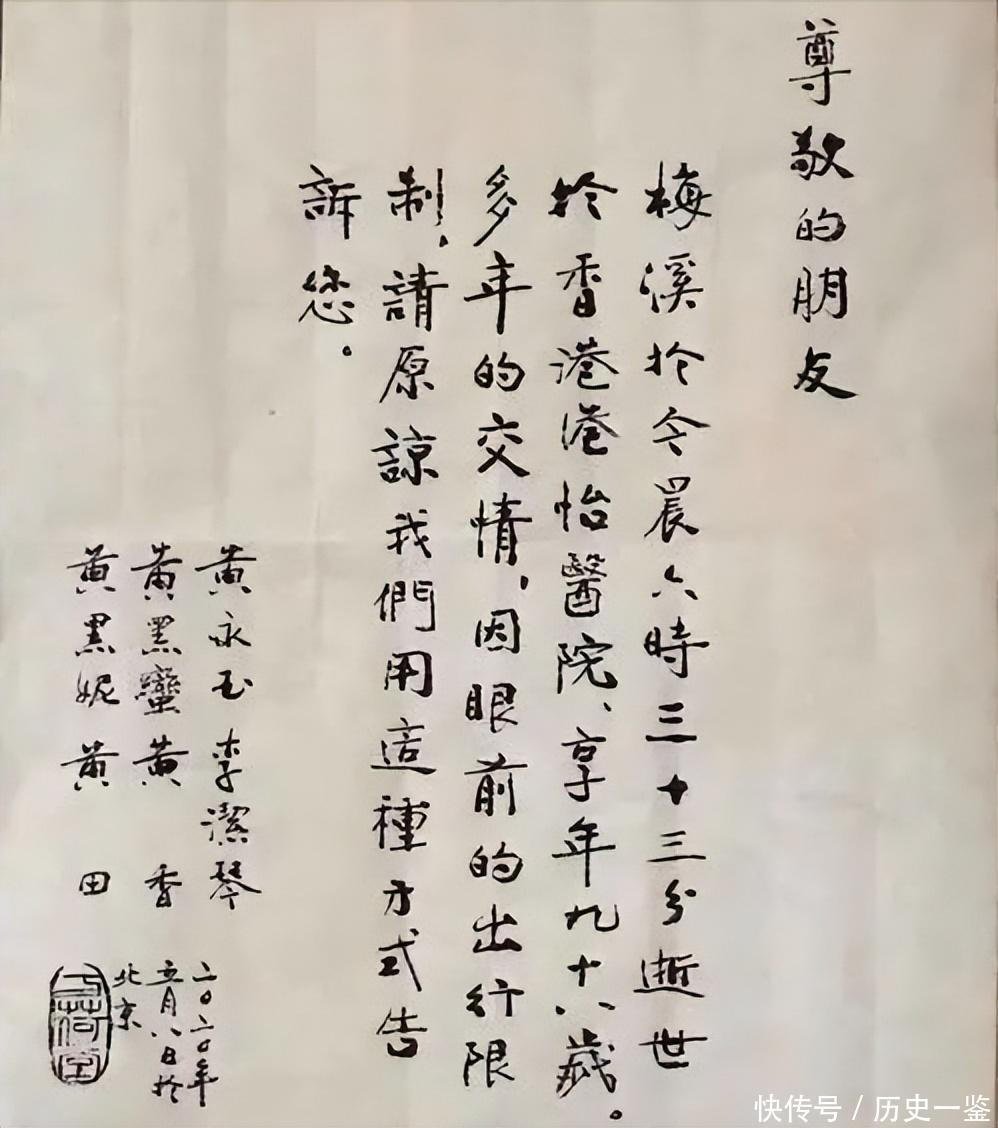 尊敬的朋友
梅溪於今晨六時三十三分逝世
於香港港怡醫院、享年九十八歲。
多年的交情，因眼前的出行限
制、請原諒我們用這種方式告
訴您。
黃永玉 李潔琴
黃黑蠻 黃香
黃黑妮 黃田
二〇二〇年
五月八日於
北京
快传号 / 历史一鉴